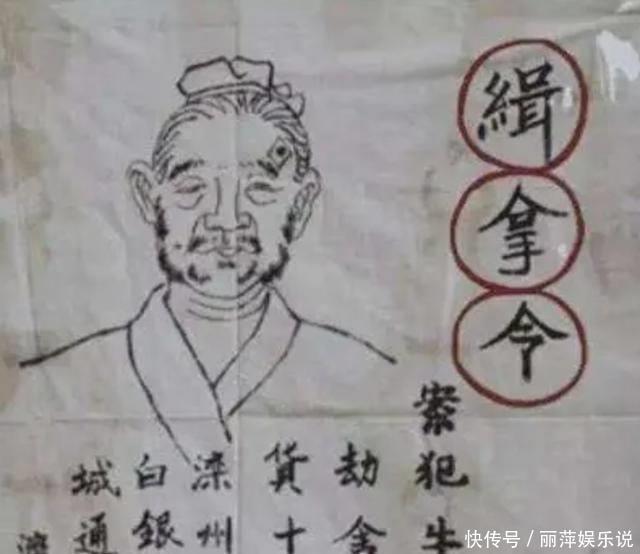 緝拿令
案犯牛
劫舍
貨十
滦州
白銀
城通
快传号 / 丽萍娱乐说